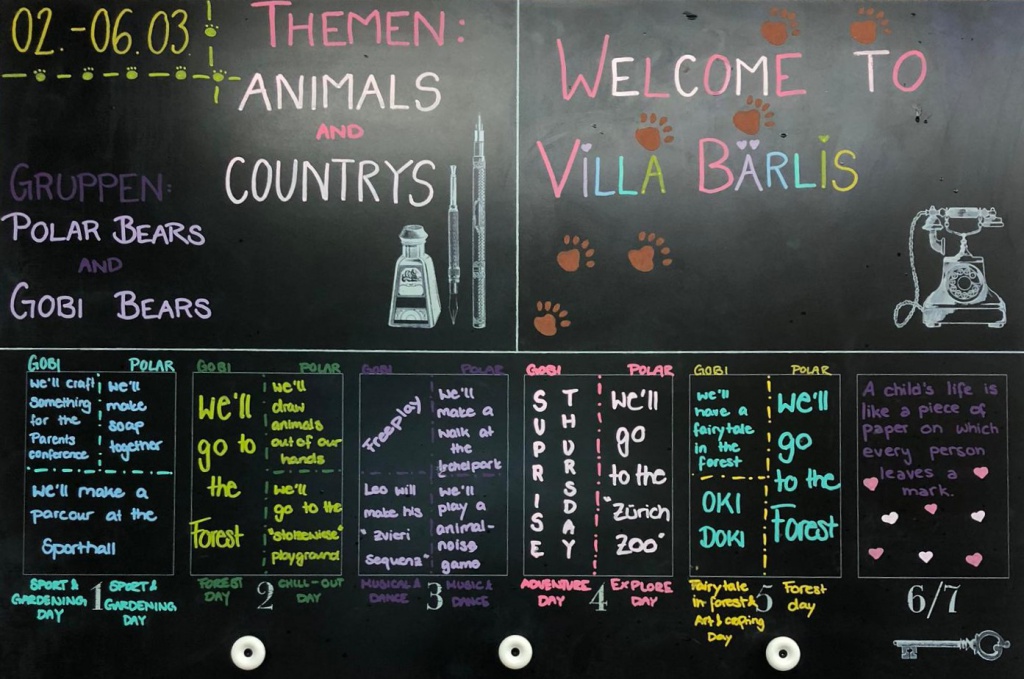 02.-06.03
THEMEN:
ANIMALS
AND
COUNTRYS
GRUPPEN:
POLAR BEARS
AND
GOBI BEARS
WELCOME TO
VILLA BÄRLIS
GOBI POLAR
we'll craft
something
for the
Parents
conference
we'll
make
soap
together
we'll make a
parcour at the
Sporthall
SPORT &
GARDENING
DAY
1
SPORT &
GARDENING
DAY
GOBI POLAR
we'll
go to
the
Forest
we'll
draw
animals
out of our
hands
we'll
go to the
playground
FOREST
DAY
2
CHILL-OUT
DAY
GOBI POLAR
Freeplay
Leo will
make his
"zvieri
Sequenz"
we'll
make a
walk at
the
we'll
play a
animal-
noise
game
MUSICAL &
DANCE
3
MUSIC &
DANCE
GOBI POLAR
SUPRISE
THURSDAY
we'll
go
to the
"Zürich
Zoo"
ADVENTURE
DAY
4
EXPLORE
DAY
GOBI POLAR
we'll
have a
fairytale
in the
forest
OKI
DOKI
we'll
go
to the
Forest
Fairytale
in forest &
Art &
Day
5
Forest
day
A child's life is
like a piece of
paper on which
every person
leaves a
mark.
6/7